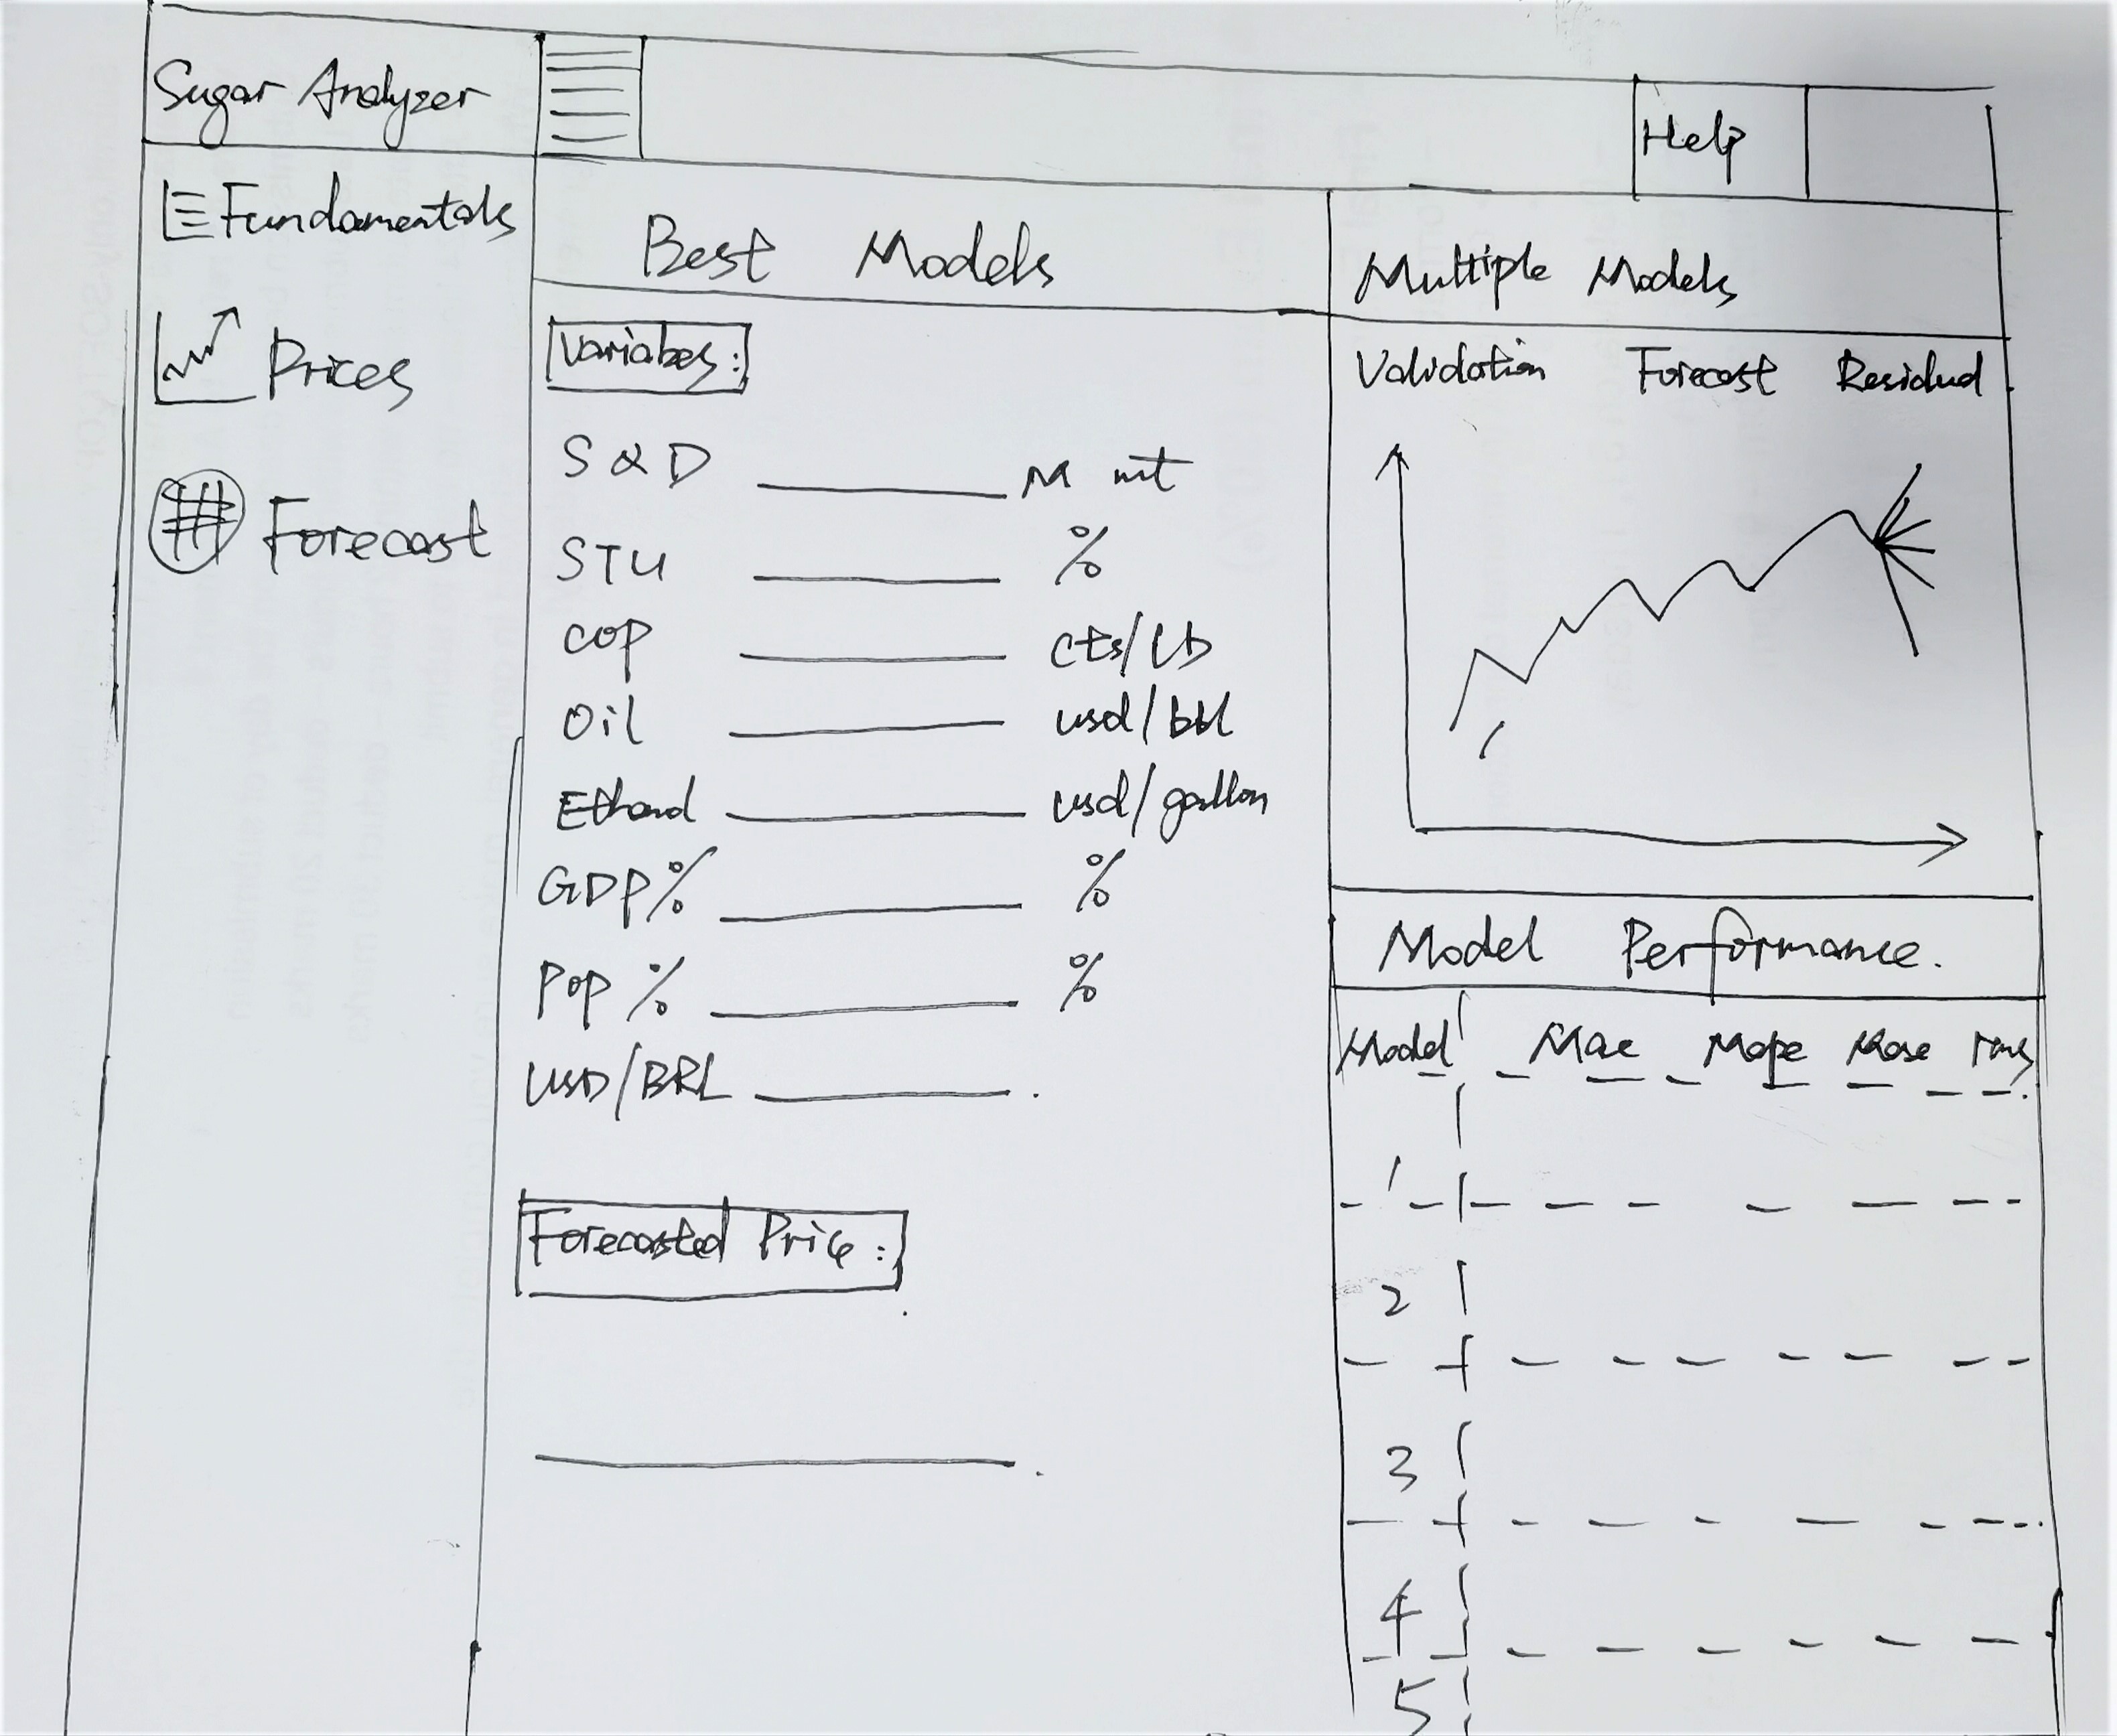 Sugar Analyzer
Help
Fundamentals
Prices
Forecast
Best Models
Variabes:
S & D M mt
STU %
COP cts/lb
Oil usd/bbl
Ethanol usd/gallon
GDP% %
Pop % %
USD/BRL
Forecasted Price:
Multiple Models
Validation Forecast Residual
Model Performance.
Model Mae Mape Mase rms
1
2
3
4
5